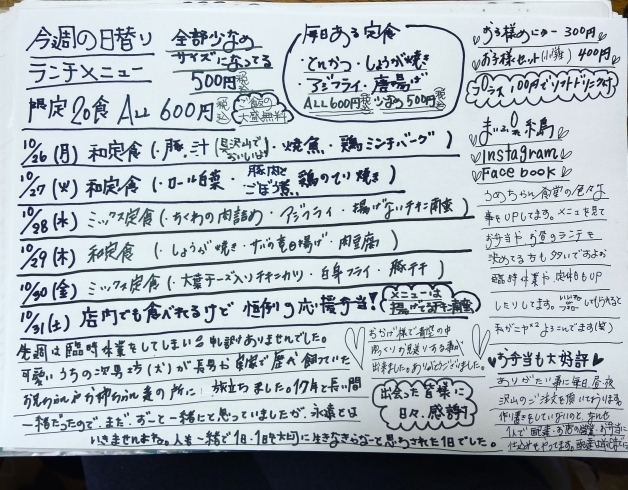 今週の日替り
ランチメニュー
全部少なめ
サイズになってる
500円 税込
限定20食 ALL 600円 税込
ご飯の
大盛無料
毎日ある定食
・とんかつ・しょうが焼き
・アジフライ・唐揚げ
ALL600円 税込 少なめ500円 税込
お子様メニュー 300円
お子様セット 400円
プラス100円でソフトドリンク付
10/26(月) 和定食(・豚汁(具沢山でおいしい)・焼魚・鶏ミンチバーグ)
10/27(火) 和定食(・ロール白菜・豚肉とごぼう煮・鶏のてり焼き)
10/28(水) ミックス定食(・ちくわの肉詰め・アジフライ・揚げないチキン南蛮)
10/29(木) 和定食(・しょうが焼き・竜田揚げ・肉豆腐)
10/30(金) ミックス定食(・大葉チーズ入りチキンカツ・白身フライ・豚キムチ)
10/31(土) 店内でも食べれるけど 恒例の応援弁当!
メニューは
揚げないチキン南蛮
今週は臨時休業をしてしまい申し訳ありませんでした。
可愛いうちの次男坊(犬)が長男が車庫で
旅立ちました。17年と長い間
一緒だったので、まだ、ずーと一緒にと思っていましたが、永遠とは
いきませんよね。人も一緒で1日・1日を大切に生きなきゃなーと思わされた1日でした。
出来ました。ありがとうございました。
出会った皆様に
日々、感謝
まいぷれ糸島
Instagram
Facebook
うめちゃん食堂の色々な
事をUPしてます。メニューを見て
お弁当やお昼のランチを
決めてる方も多いですよね
臨時休業や、定休もUP
したりしてます。いいねやフォローしてもらえると
私がニヤニヤよろこんでます(笑)
お弁当も大好評
ありがたい事に毎日、昼夜
沢山のご注文を頂いております
作り置きをしていないのと、なんせ
1人で配達・お店の営業・お弁当に
仕込みをやってます。